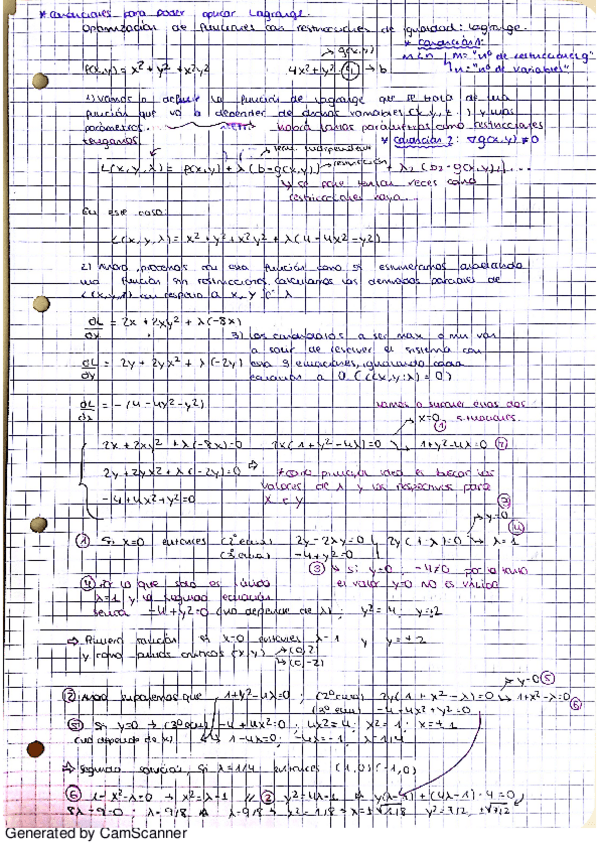 * Condiciones para poder aplicar Lagrange.
Optimización de funciones con restricciones de igualdad: Lagrange.
→ g(x,y)
* Condición 1:
f(x,y) = x² + y² + x²y²   4x² + y² = 4 → b
m < n   m = "nº de restricciones g"
n = "nº de variables"
1) Vamos a definir la función de Lagrange que se trata de una
función que va a depender de dichas variables (x, y, ...) y unos
parámetros. habrá tantos parámetros como restricciones
tengamos.
* Condición 2: ∇g(x,y) ≠ 0
→ term. independiente
L(x,y,λ) = f(x,y) + λ(b - g(x,y)) → restricción + λ₂(b₂ - g(x,y)) ...
→ se pone tantas veces como
restricciones haya...
En este caso
L(x,y,λ) = x² + y² + x²y² + λ(4 - 4x² - y²)
2) Ahora, en esa función como si estuviéramos
una función sin restricciones, calculamos las derivadas parciales de
L(x,y,λ) con respecto a x, y, λ
∂L/∂x = 2x + 2xy² + λ(-8x)
3) Los candidatos a ser max o min van
a salir de resolver el sistema con
∂L/∂y = 2y + 2yx² + λ(-2y)
esas 3 ecuaciones, igualando cada
ecuación a 0 (L(x,y,λ) = 0)
∂L/∂λ = -(4 - 4x² - y²)
vamos a suponer esas dos
→ x=0 ① situaciones.
2x + 2xy² + λ(-8x) = 0   2x(1 + y² - 4λ) = 0 → 1 + y² - 4λ = 0 ②
2y + 2yx² + λ(-2y) = 0 ⇒ * Como principal idea es buscar los
valores de λ y los respectivos para
-4 + 4x² + y² = 0   x e y
③
→ y=0
④
① Si x=0 entonces (2ª ecua) 2y - 2λy = 0   2y(1-λ) = 0 → λ=1
(3ª ecua) -4 + y² = 0
③ → si y=0, -4≠0 por lo tanto
④ Por lo que solo es válido el valor y=0 no es válido
λ=1 y la segunda ecuación
sería -4 + y² = 0 (no depende de λ); y² = 4, y = ±2
⇒ Primera solución si x=0 entonces λ=1 y y = ±2
y como puntos críticos (x,y) → (0,2)
→ (0,-2)
→ y=0 ⑤
② Ahora supongamos que 1 + y² - 4λ = 0; (2ª ecua) 2y(1 + x² - λ) = 0 → 1 + x² - λ = 0 ⑥
(3ª ecua) -4 + 4x² + y² = 0
⑤ Si y=0 → (3ª ecua) -4 + 4x² = 0; 4x² = 4; x² = 1; x = ±1
(no depende de λ) → 1 - 4λ = 0; -4λ = -1; λ = 1/4
⇒ Segunda solución, si λ = 1/4 entonces (1,0) (-1,0)
⑥ 1 + x² - λ = 0 → x² = λ - 1 // ② y² = 4λ - 1
8λ - 9 = 0; λ = 9/8